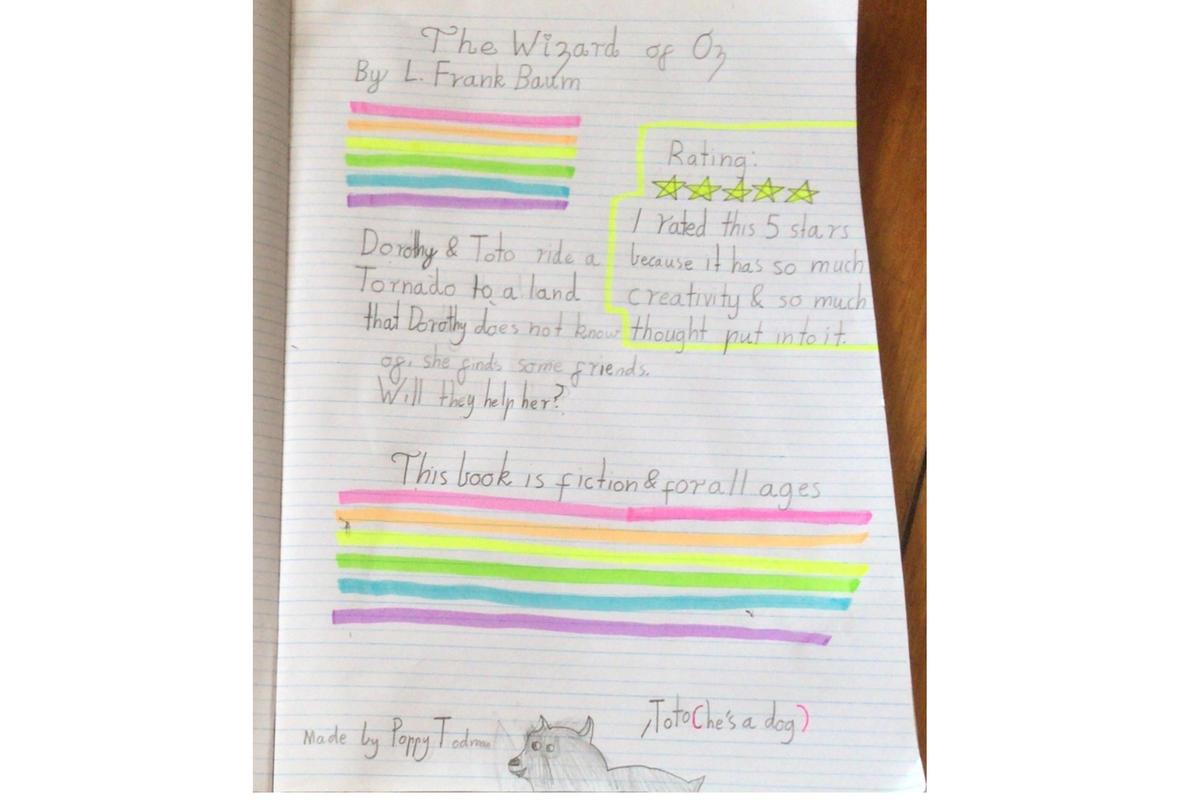 The Wizard of Oz
By L. Frank Baum
Rating:
I rated this 5 stars
because it has so much
creativity & so much
thought put into it.
Dorothy & Toto ride a
Tornado to a land
that Dorothy does not know
of, she finds some friends.
Will they help her?
This book is fiction & for all ages
Toto (he's a dog)
Made by Poppy Todman